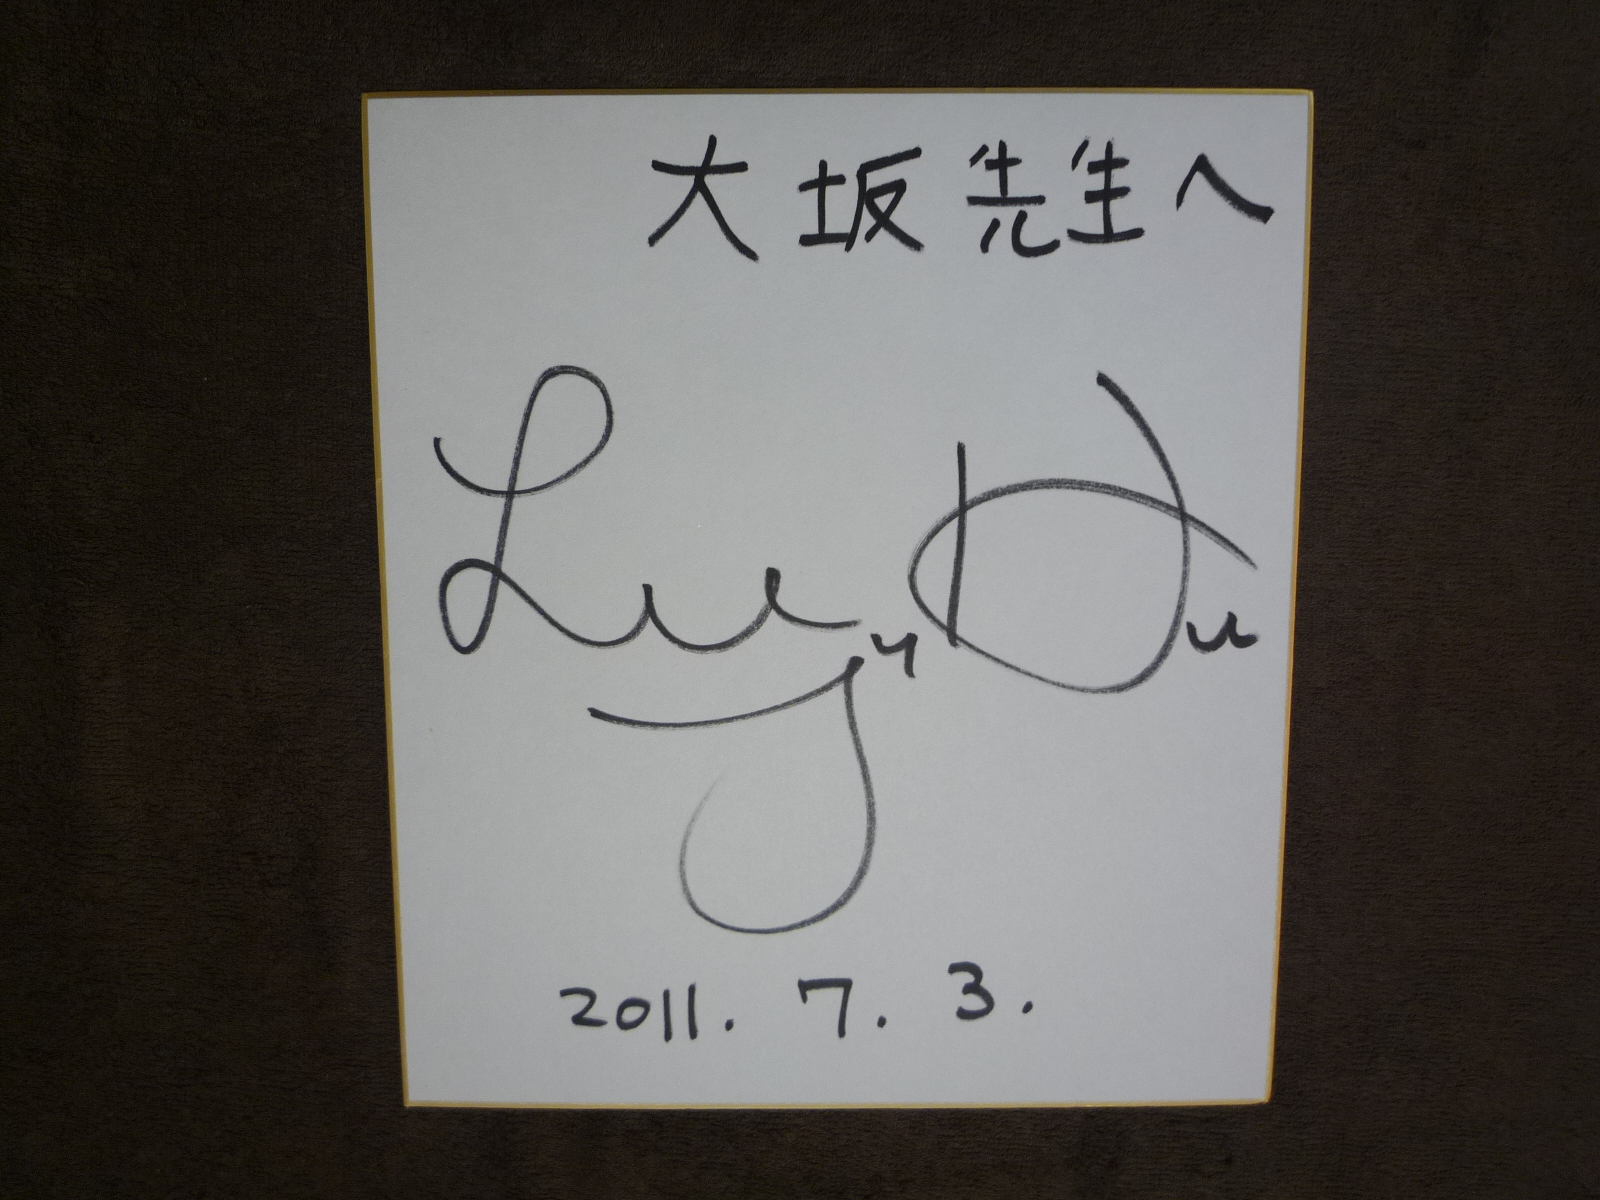 大坂先生へ
2011. 7. 3.